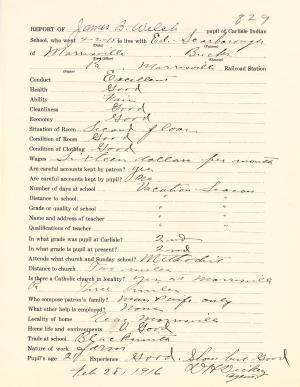 829
REPORT OF James B. Welch pupil of Carlisle Indian
School, who went 4-2-15 to live with Ed. Scarborough
(Date) (Patron)
at Morrisville Bucks
(Post Office) (County)
Pa Morrisville Railroad Station
(State)
Conduct Excellent
Health Good
Ability Fair
Cleanliness Good
Economy Good
Situation of Room Second floor
Condition of Room Good
Condition of Clothing Good
Wages Sixteen dollars per month
Are careful accounts kept by patron? yes
Are careful accounts kept by pupil?
Number of days at school Vacation Season
Distance to school " "
Grade or quality of school " "
Name and address of teacher " "
Qualifications of teacher " "
In what grade was pupil at Carlisle? 2nd
In what grade is pupil at present? 2nd
Attends what church and Sunday school? Methodist
Distance to church Two miles
Is there a Catholic church in locality? yes at Morrisville
Pa Three miles
Who compose patron's family? Man & wife only
What other help is employed? None
Locality of home Near Morrisville
Home life and environments Good
Trade at school Blacksmith
Nature of work Farm
Pupil's age 21 Experience Good. Slow but Good
Feb 25, 1916
Agent.